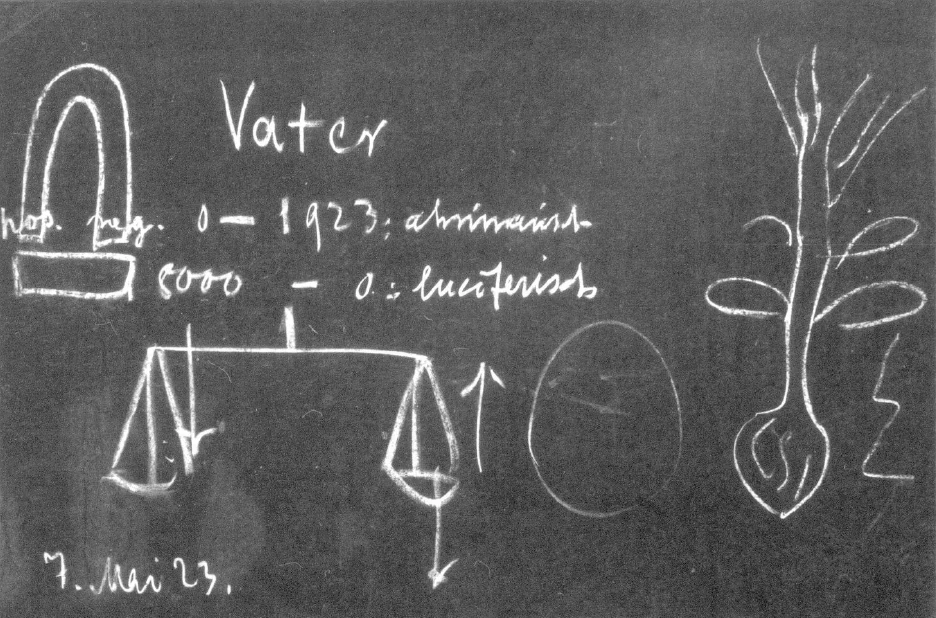 Vater
pos. neg. 0 – 1923: ahrimanisch
8000 – 0: luciferisch
7. Mai 23.